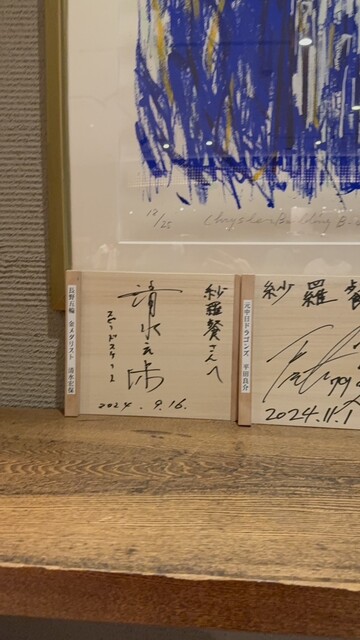 12/25
Chrysler Building B
長野五輪 金メダリスト 清水宏保
紗羅餐さんへ
清水宏保
スピードスケート
2024.9.16.
元中日ドラゴンズ 平田良介
紗羅餐
2024.11.1